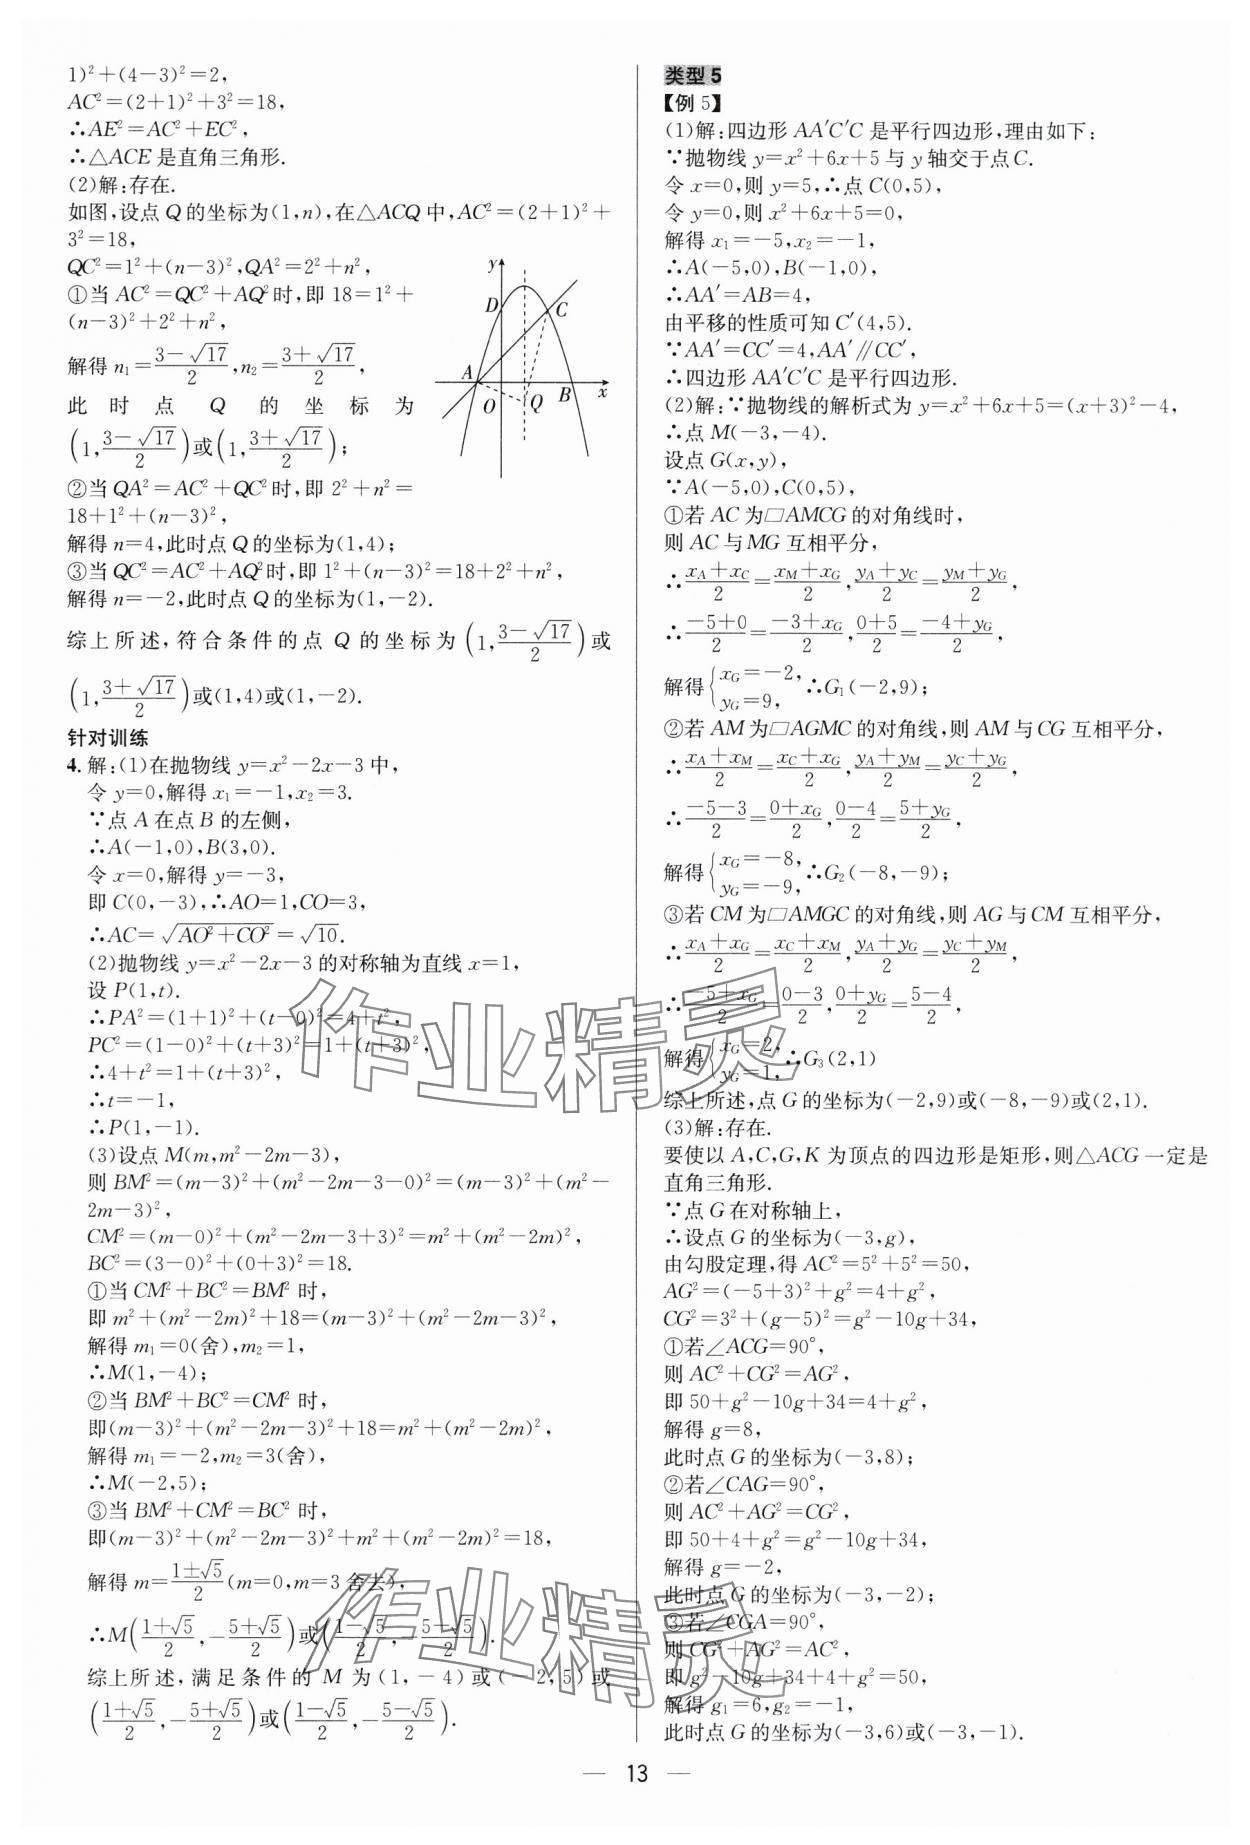 1)²+(4-3)²=2,
AC²=(2+1)²+3²=18,
∴AE²=AC²+EC²,
∴△ACE是直角三角形.
(2)解:存在.
如图,设点Q的坐标为(1,n),在△ACQ中,AC²=(2+1)²+
3²=18,
QC²=1²+(n-3)²,QA²=2²+n²,
①当AC²=QC²+AQ²时,即18=1²+
(n-3)²+2²+n²,
解得n₁=(3-√17)/2,n₂=(3+√17)/2,
此时点Q的坐标为
(1,(3-√17)/2)或(1,(3+√17)/2);
②当QA²=AC²+QC²时,即2²+n²=
18+1²+(n-3)²,
y
D
C
A
O
Q
B
x
解得n=4,此时点Q的坐标为(1,4);
③当QC²=AC²+AQ²时,即1²+(n-3)²=18+2²+n²,
解得n=-2,此时点Q的坐标为(1,-2).
综上所述,符合条件的点Q的坐标为(1,(3-√17)/2)或
(1,(3+√17)/2)或(1,4)或(1,-2).
针对训练
4.解:(1)在抛物线y=x²-2x-3中,
令y=0,解得x₁=-1,x₂=3.
∵点A在点B的左侧,
∴A(-1,0),B(3,0).
令x=0,解得y=-3,
即C(0,-3),∴AO=1,CO=3,
∴AC=√(AO²+CO²)=√10.
(2)抛物线y=x²-2x-3的对称轴为直线x=1,
设P(1,t).
∴PA²=(1+1)²+(t-0)²=4+t²,
PC²=(1-0)²+(t+3)²=1+(t+3)²,
∴4+t²=1+(t+3)²,
∴t=-1,
∴P(1,-1).
(3)设点M(m,m²-2m-3),
则BM²=(m-3)²+(m²-2m-3-0)²=(m-3)²+(m²-
2m-3)²,
CM²=(m-0)²+(m²-2m-3+3)²=m²+(m²-2m)²,
BC²=(3-0)²+(0+3)²=18.
①当CM²+BC²=BM²时,
即m²+(m²-2m)²+18=(m-3)²+(m²-2m-3)²,
解得m₁=0(舍),m₂=1,
∴M(1,-4);
②当BM²+BC²=CM²时,
即(m-3)²+(m²-2m-3)²+18=m²+(m²-2m)²,
解得m₁=-2,m₂=3(舍),
∴M(-2,5);
③当BM²+CM²=BC²时,
即(m-3)²+(m²-2m-3)²+m²+(m²-2m)²=18,
解得m=(1±√5)/2(m=0,m=3舍去),
∴M((1+√5)/2,-(5+√5)/2)或((1-√5)/2,-(5-√5)/2).
综上所述,满足条件的M为(1,-4)或(-2,5)或
((1+√5)/2,-(5+√5)/2)或((1-√5)/2,-(5-√5)/2).
类型5
【例5】
(1)解:四边形AA′C′C是平行四边形,理由如下:
∵抛物线y=x²+6x+5与y轴交于点C.
令x=0,则y=5,∴点C(0,5),
令y=0,则x²+6x+5=0,
解得x₁=-5,x₂=-1,
∴A(-5,0),B(-1,0),
∴AA′=AB=4,
由平移的性质可知C′(4,5).
∵AA′=CC′=4,AA′∥CC′,
∴四边形AA′C′C是平行四边形.
(2)解:∵抛物线的解析式为y=x²+6x+5=(x+3)²-4,
∴点M(-3,-4).
设点G(x,y),
∵A(-5,0),C(0,5),
①若AC为□AMCG的对角线时,
则AC与MG互相平分,
∴(x_A+x_C)/2=(x_M+x_G)/2,(y_A+y_C)/2=(y_M+y_G)/2,
∴(-5+0)/2=(-3+x_G)/2,(0+5)/2=(-4+y_G)/2,
解得{x_G=-2, y_G=9, ∴G₁(-2,9);
②若AM为□AGMC的对角线,则AM与CG互相平分,
∴(x_A+x_M)/2=(x_C+x_G)/2,(y_A+y_M)/2=(y_C+y_G)/2,
∴(-5-3)/2=(0+x_G)/2,(0-4)/2=(5+y_G)/2,
解得{x_G=-8, y_G=-9, ∴G₂(-8,-9);
③若CM为□AMGC的对角线,则AG与CM互相平分,
∴(x_A+x_G)/2=(x_C+x_M)/2,(y_A+y_G)/2=(y_C+y_M)/2,
∴(-5+x_G)/2=(0-3)/2,(0+y_G)/2=(5-4)/2,
解得{x_G=2, y_G=1, ∴G₃(2,1)
综上所述,点G的坐标为(-2,9)或(-8,-9)或(2,1).
(3)解:存在.
要使以A,C,G,K为顶点的四边形是矩形,则△ACG一定是
直角三角形.
∵点G在对称轴上,
∴设点G的坐标为(-3,g),
由勾股定理,得AC²=5²+5²=50,
AG²=(-5+3)²+g²=4+g²,
CG²=3²+(g-5)²=g²-10g+34,
①若∠ACG=90°,
则AC²+CG²=AG²,
即50+g²-10g+34=4+g²,
解得g=8,
此时点G的坐标为(-3,8);
②若∠CAG=90°,
则AC²+AG²=CG²,
即50+4+g²=g²-10g+34,
解得g=-2,
此时点G的坐标为(-3,-2);
③若∠CGA=90°,
则CG²+AG²=AC²,
即g²-10g+34+4+g²=50,
解得g₁=6,g₂=-1,
此时点G的坐标为(-3,6)或(-3,-1).
作业精灵
作业精灵
— 13 —